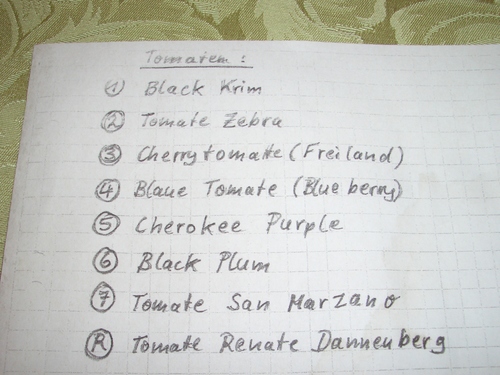 Tomaten :
① Black Krim
② Tomate Zebra
③ Cherrytomatte (Freiland)
④ Blaue Tomate (Blue berry)
⑤ Cherokee Purple
⑥ Black Plum
⑦ Tomate San Marzano
Ⓡ Tomate Renate Dannenberg